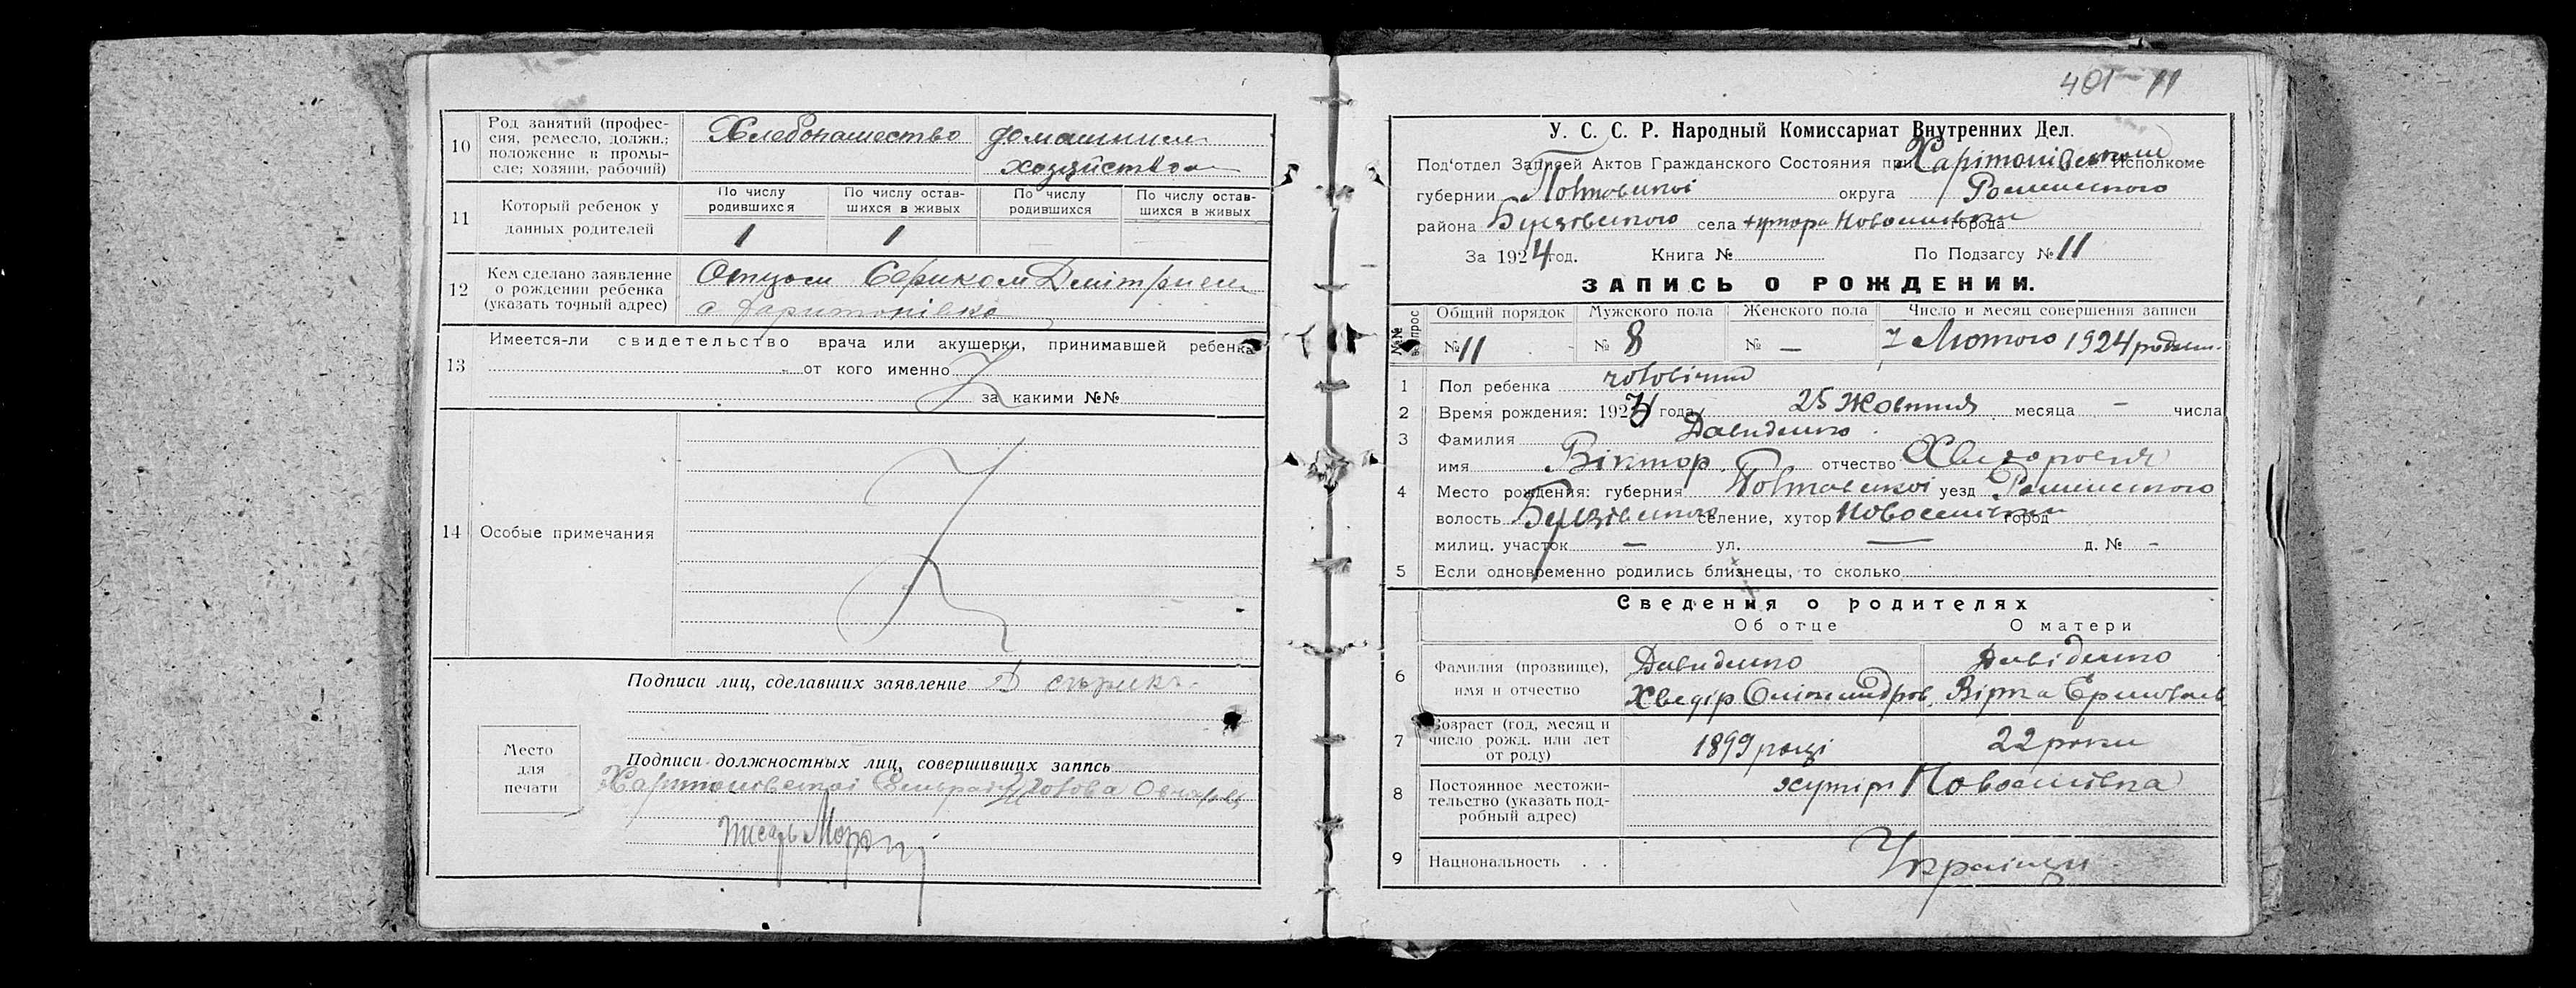 10 Род занятий (профес-
сия, ремесло, должн.;
положение в промы-
сле; хозяин, рабочий)
Хлебопашество
домашним
хозяйством
11 Который ребенок у
данных родителей
По числу
родившихся
По числу остав-
шихся в живых
По числу
родившихся
По числу остав-
шихся в живых
1 1
12 Кем сделано заявление
о рождении ребенка
(указать точный адрес)
Отцом Сериком Дмітрием
с Харитонівка
13 Имеется-ли свидетельство врача или акушерки, принимавшей ребенка
от кого именно
за какими №№
14 Особые примечания
Подписи лиц, сделавших заявление Д
Место
для
печати
Подписи должностных лиц, совершивших запись
Харитонівської Голова
писарь Мороз
401 — 11
У. С. С. Р. Народный Комиссариат Внутренних Дел.
Под'отдел Записей Актов Гражданского Состояния при Харітонівском Исполкоме
губернии Полтавської округа Роменського
района села хутора Новоселівки города
За 1924 год. Книга № По Подзагсу № 11
ЗАПИСЬ О РОЖДЕНИИ.
№№ вопрос
Общий порядок Мужского пола Женского пола Число и месяц совершения записи
№ 11 № 8 № — 7 Лютого 1924 року
1 Пол ребенка чоловічий
2 Время рождения: 192 года 25 Жовтня месяца — числа
3 Фамилия Давиденко
имя Віктор отчество Хведорович
4 Место рождения: губерния Полтавської уезд Роменського
волость селение, хутор Новоселівки город
милиц. участок — ул. — д. № -
5 Если одновременно родились близнецы, то сколько
Сведения о родителях
Об отце О матери
6 Фамилия (прозвище),
имя и отчество
Давиденко Давіденко
Хведір Олександров. Вірка
7 Возраст (год, месяц и
число рожд. или лет
от роду)
1899 році 22 роки
8 Постоянное местожи-
тельство (указать под-
робный адрес)
хутір Новоселівка
9 Национальность . . Українці